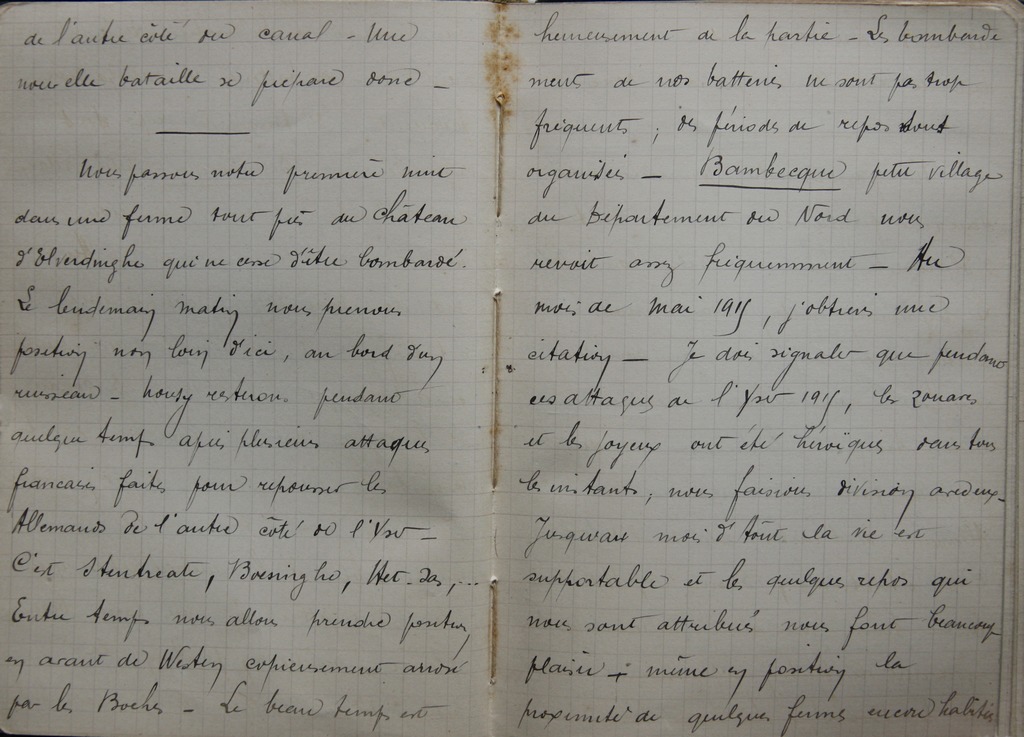 de l'autre côté du canal - Une
nouvelle bataille se prépare donc -
Nous passons notre première nuit
dans une ferme tout près du Château
d'Elverdinghe qui ne cesse d'être bombardé.
Le lendemain matin nous prenons
position non loin d'ici, au bord d'un
ruisseau - nous y resterons pendant
quelque temps après plusieurs attaques
francaises faites pour repousser les
Allemands de l'autre côté de l'Yser -
C'est Steentraate, Boesinghe, Het-Sas, ...
Entre temps nous allons prendre position
en avant de Westen copieusement arrosé
par les Boches - Le beau temps est
heureusement de la partie - Les bombarde
ments de nos batteries ne sont pas trop
fréquents ; des périodes de repos sont
organisées - Bambecque petit village
du Département du Nord nous
revoit assez fréquemment - Au
mois de mai 1915, j'obtiens une
citation - Je dois signaler que pendant
ces attaques de l'Yser 1915, les zouaves
et les joyeux ont été héroïques dans tous
les instants ; nous faisions division avec eux -
Jusqu'au mois d'août la vie est
supportable et les quelques repos qui
nous sont attribués nous font beaucoup
plaisir ; même en position la
proximité de quelques fermes encore habitées